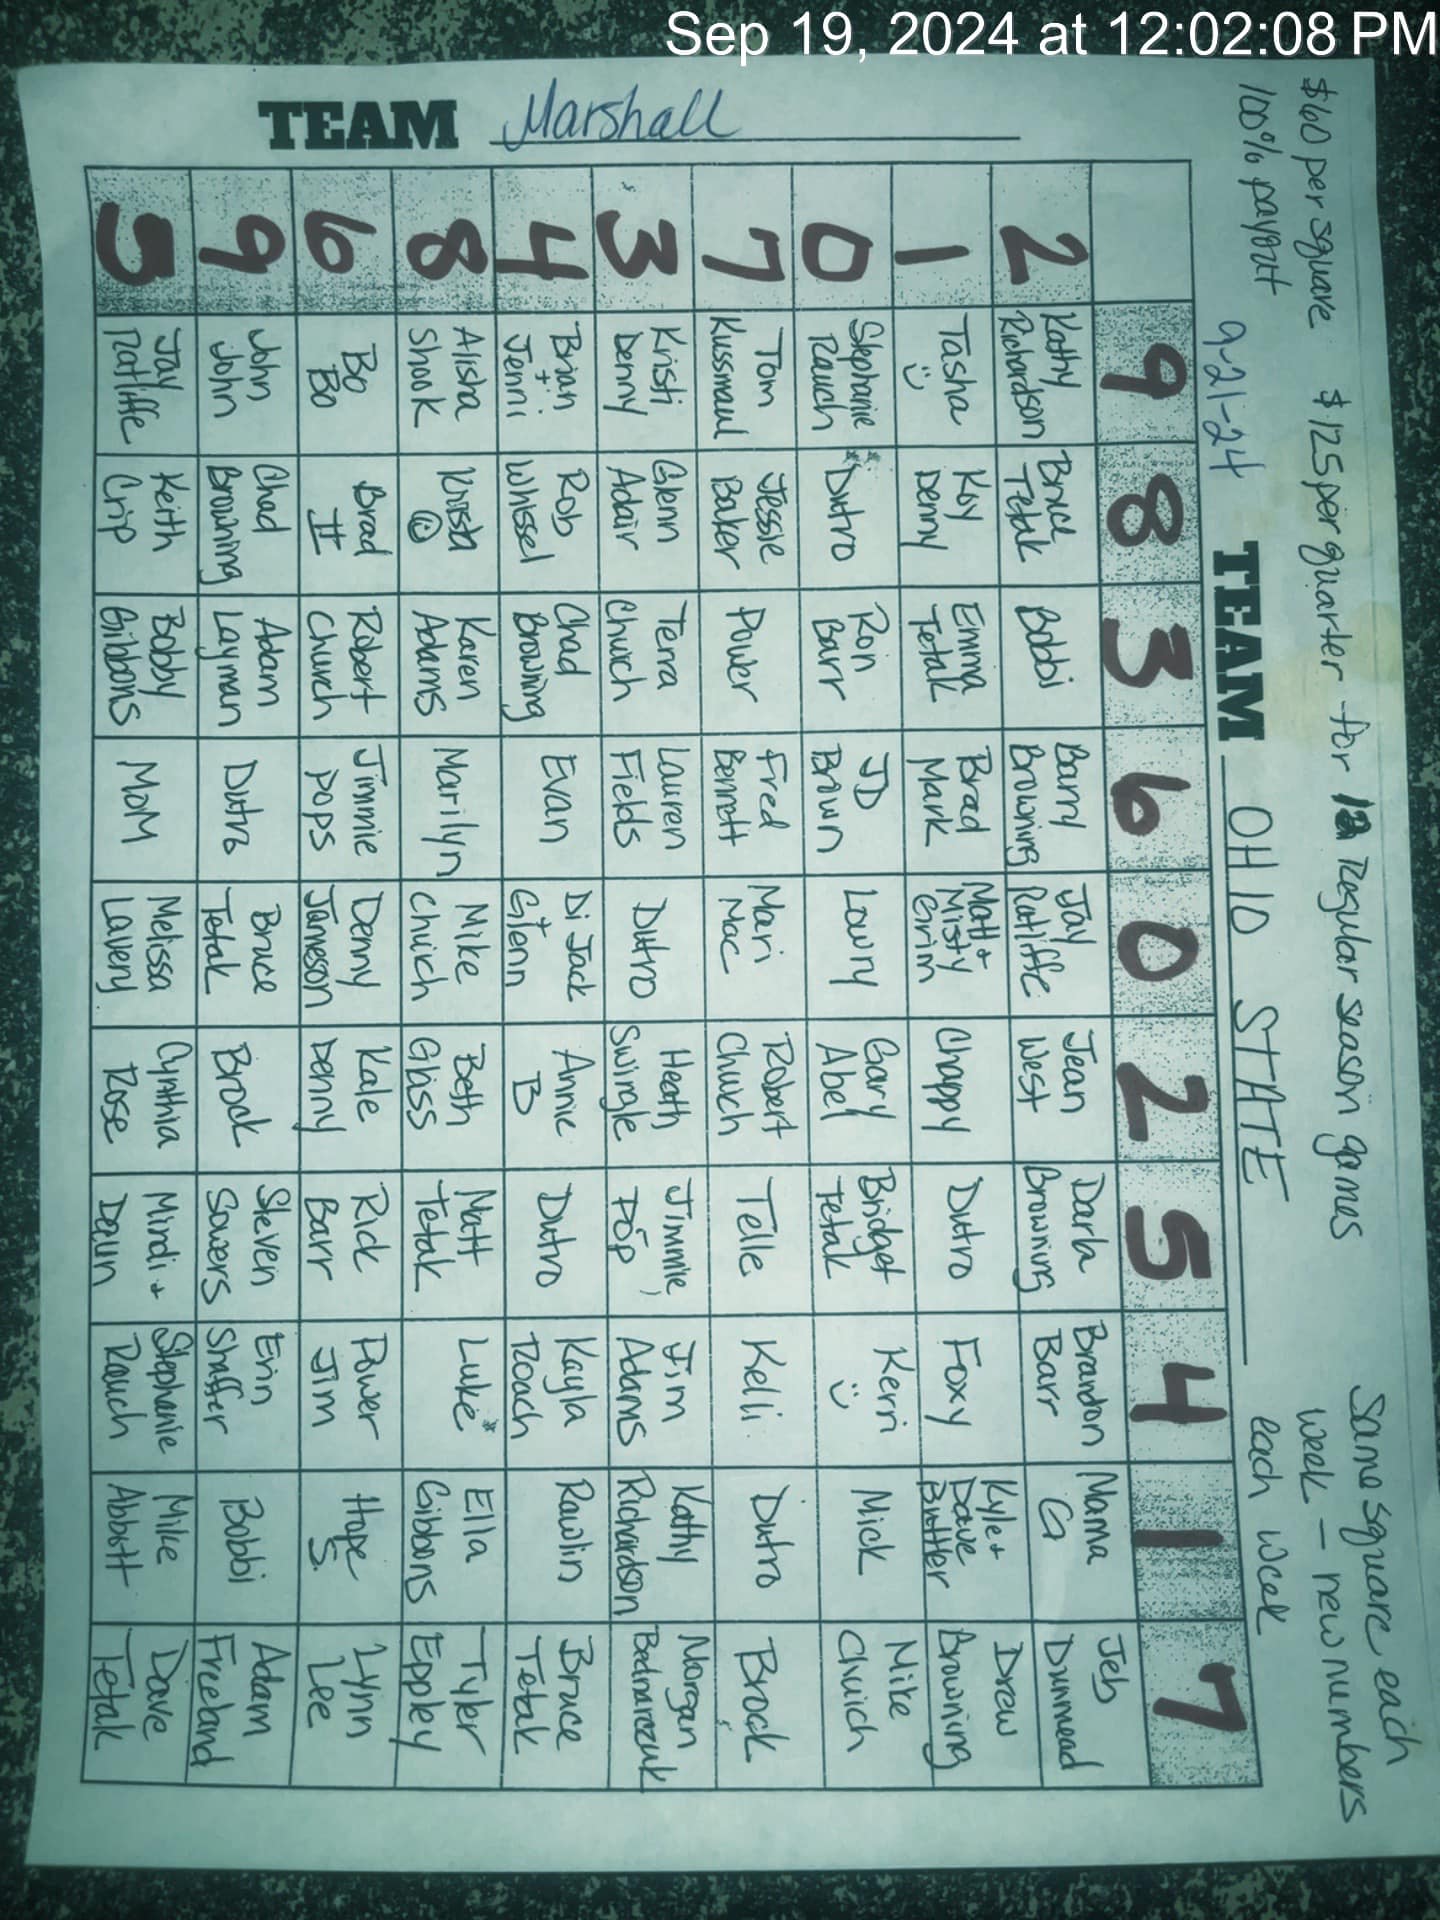 Sep 19, 2024 at 12:02:08 PM
$60 per square $125 per quarter for 12 Regular season games
Same square each
week - new numbers
each week
100% payout
9-21-24
TEAM OHIO STATE
TEAM Marshall
9 8 3 6 0 2 5 4 1 7
2 Kathy Richardson Bruce Tetak Bobbi Barry Browning Jay Ratliffe Jean West Darla Browning Brandon Barr Mama G Jeb Dunmead
1 Tasha Koy Denny Emma Tetak Brad Mark Matt + Misty Grim Chappy Dutro Foxy Kyle + Dave Butler Drew Browning
0 Stephanie Rauch Dutro Ron Barr JD Brown Lowry Gary Abel Bridget Tetak Kerri Mick Mike Church
7 Tom Kussmaul Jessie Baker Power Fred Bennett Mari Mac Robert Church Telle Kelli Dutro Brock
3 Kristi Denny Glenn Adair Terra Church Lauren Fields Dutro Heath Swingle Jimmie, Pop Jim Adams Kathy Richardson Morgan
4 Brian + Jenni Rob Whissel Chad Browning Evan Di Jack + Glenn Annie B Dutro Kayla Roach Rawlin Bruce Tetak
8 Alisha Shook Krista Karen Adams Marilyn Mike Church Beth Glass Matt Tetak Luke* Ella Gibbons Tyler Eppley
6 Bo Bo Brad II Robert Church Jimmie Pops Denny Jameson Kale Denny Rick Barr Power Jim Hope S. Lynn Lee
9 John John Chad Browning Adam Layman Dutro Bruce Tetak Brock Steven Sowers Erin Shaffer Bobbi Adam Freeland
5 Jay Ratliffe Keith Crip Bobby Gibbons MoM Melissa Lavery Cynthia Rose Mindi + Deun Stephanie Rauch Mike Abbott Dave Tetak